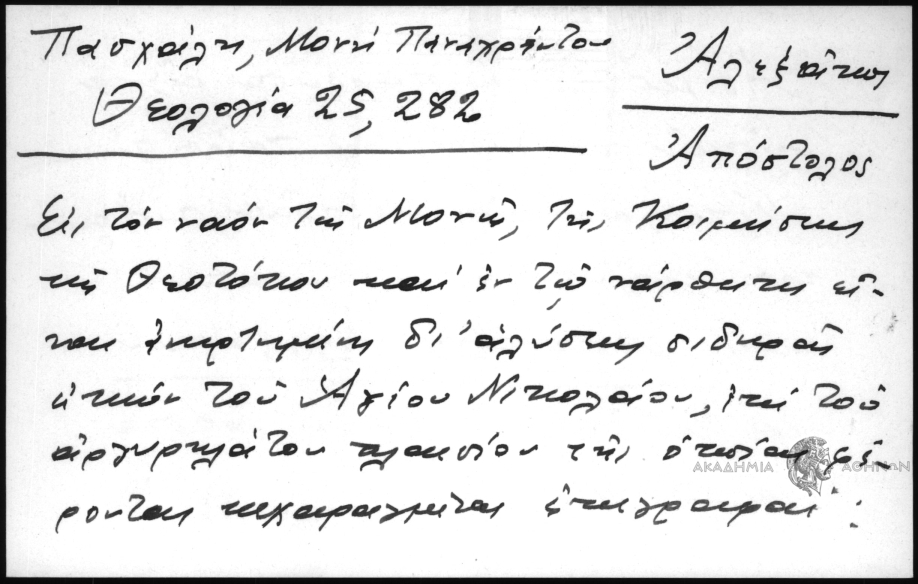 Πασχάλη, Μονή Παναχράντου
Θεολογία 25, 282
Ἀλεξάκης
Ἀπόστολος
Εἰς τόν ναόν τῆς Μονῆς, τῆς Κοιμήσεως
τῆς Θεοτόκου καί ἐν τῷ νάρθηκι εἶ-
ναι ἀνηρτημένη δι' ἁλύσεως σιδηρᾶς
εἰκών τοῦ Ἁγίου Νικολάου, ἐπί τοῦ
ἀργυρηλάτου πλαισίου τῆς ὁποίας φέ-
ρονται κεχαραγμέναι ἐπιγραφαί :
ΑΚΑΔΗΜΙΑ ΑΘΗΝΩΝ